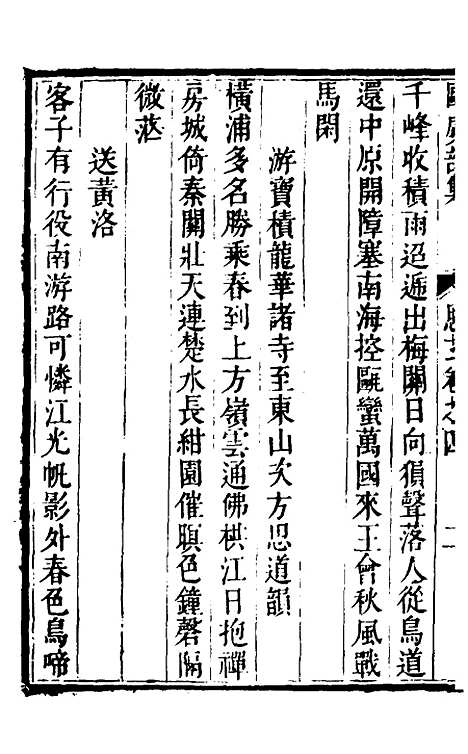 千峰收積雨迢遞出梅關日向猿聲落人從鳥道
還中原開障塞南海控甌蠻萬國來王會秋風戰
馬閑
游寶積龍華諸寺至東山次方思道韻
橫浦多名勝乘春到上方嶺雲通佛栱江日抱禪
房城倚秦關壯天連楚水長紺園催暝色鐘磬隔
微茫
送黃洛
客子有行役南游路可憐江光帆影外春色鳥啼